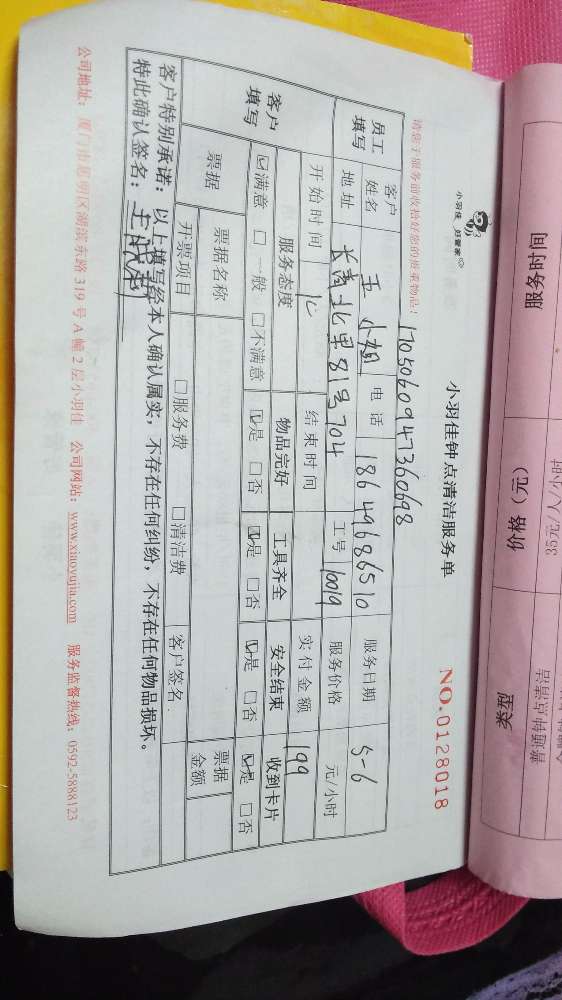 小羽佳 好管家
小羽佳钟点清洁服务单
NO.0128018
请您于服务前收拾好您的贵重物品!
1705060947360698
员工填写 客户姓名 王小姐 电话 18649686510 服务日期 5-6
地址 长青北里81号704 工号 10019 服务价格 元/小时
开始时间 结束时间 实付金额 199
客户填写 服务态度 物品完好 工具齐全 安全结束 收到卡片
☑满意 □一般 □不满意 ☑是 □否 ☑是 □否 ☑是 □否 ☑是 □否
票据 票据名称 票据金额
开票项目 □服务费 □清洁费 客户签名
客户特别承诺:以上填写经本人确认属实,不存在任何纠纷,不存在任何物品损坏。
特此确认签名:
公司地址:厦门市思明区湖滨东路319号A幢2层小羽佳 公司网站:www.xiaoyujia.com 服务监督热线:0592-5888123
服务时间
类型 价格(元)
普通钟点清洁 35元/人/小时